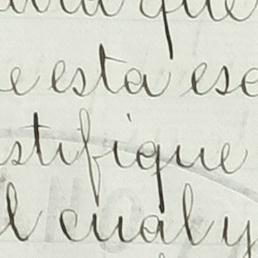 que
e esta esc
stifique
l cual y